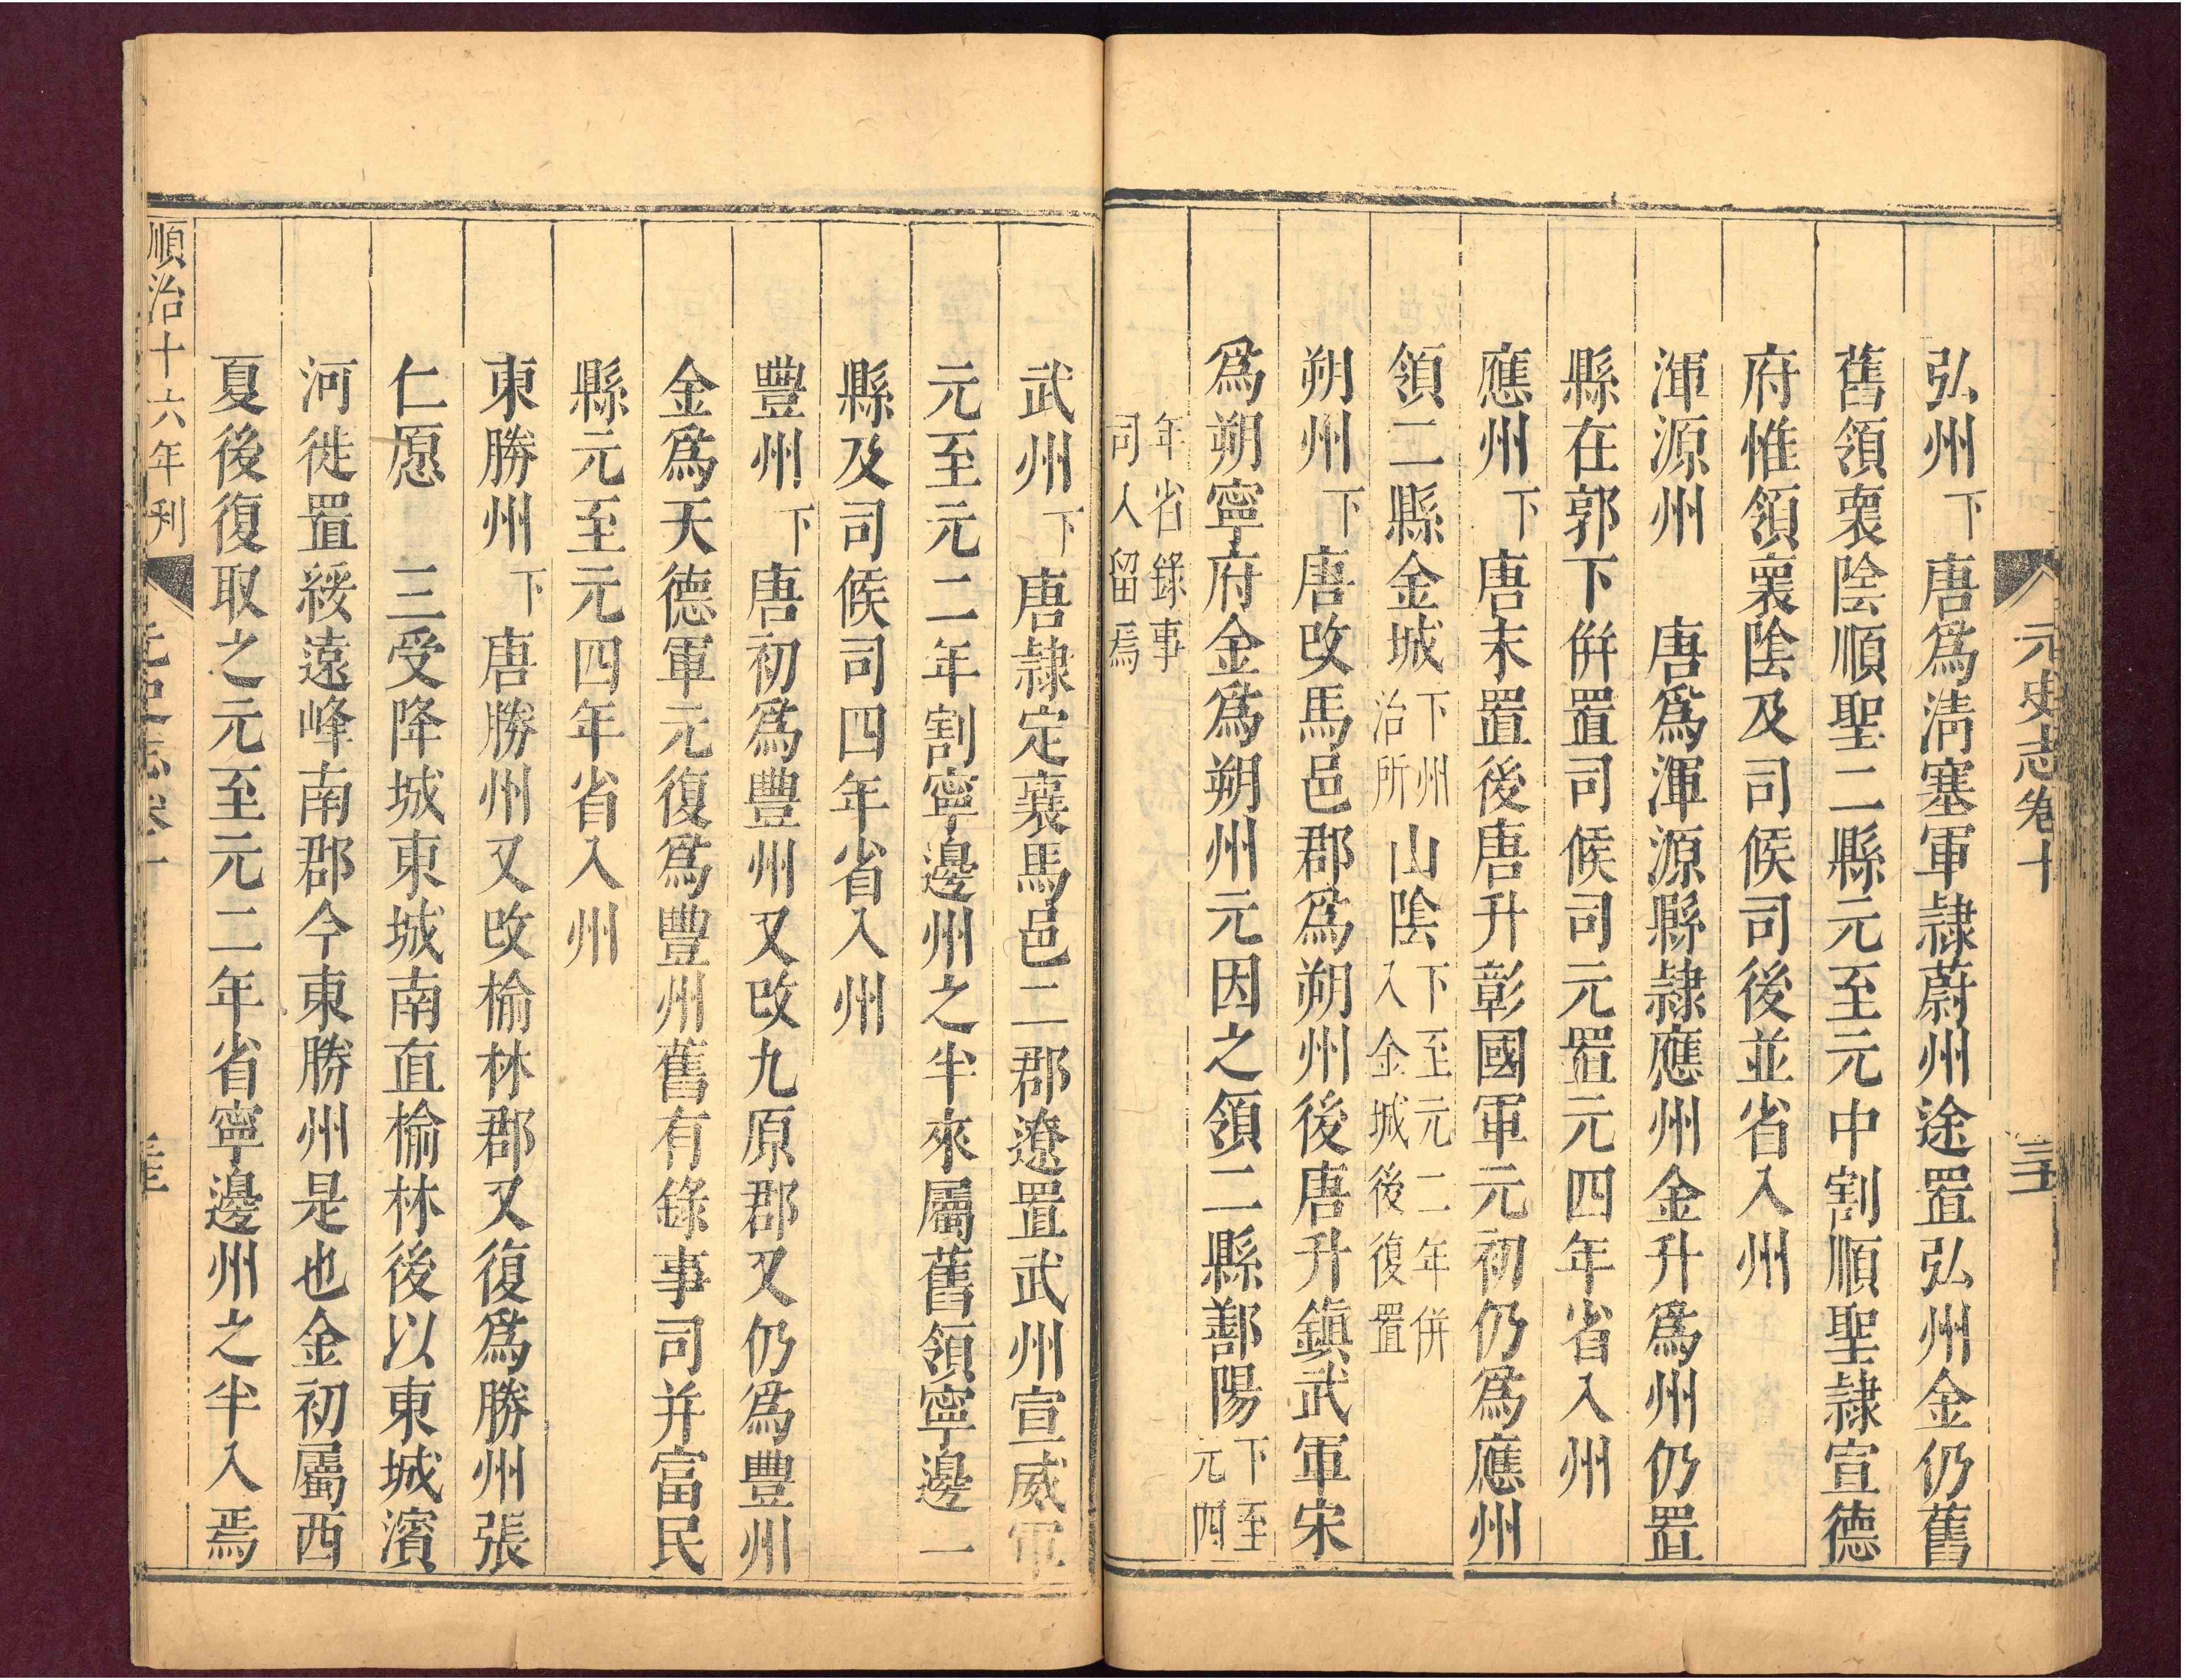 元史志卷十
弘州下唐爲淸塞軍隷蔚州遼置弘州金仍舊
舊領襄陰順聖二縣元至元中割順聖隷宣德
府惟領襄陰及司候司後並省入州
渾源州唐爲渾源縣隷應州金升爲州仍置
縣在郭下併置司候司元置元四年省入州
應州下唐末置後唐升彰國軍元初仍爲應州
領二縣金城下州治所山陰下至元二年併入金城後復置
朔州下唐改馬邑郡爲朔州後唐升鎭武軍宋
爲朔寧府金爲朔州元因之領二縣鄯陽下至元四
年省錄事司入留焉
武州下唐隷定襄馬邑二郡遼置武州宣威軍
元至元二年割寧邊州之半來屬舊領寧邊一
縣及司候司四年省入州
豐州下唐初爲豐州又改九原郡又仍爲豐州
金爲天德軍元復爲豐州舊有錄事司并富民
縣元至元四年省入州
東勝州下唐勝州又改榆林郡又復爲勝州張
仁愿三受降城東城南直榆林後以東城濱
河徙置綏遠峰南郡今東勝州是也金初屬西
夏後復取之元至元二年省寧邊州之半入焉
順治十六年刊